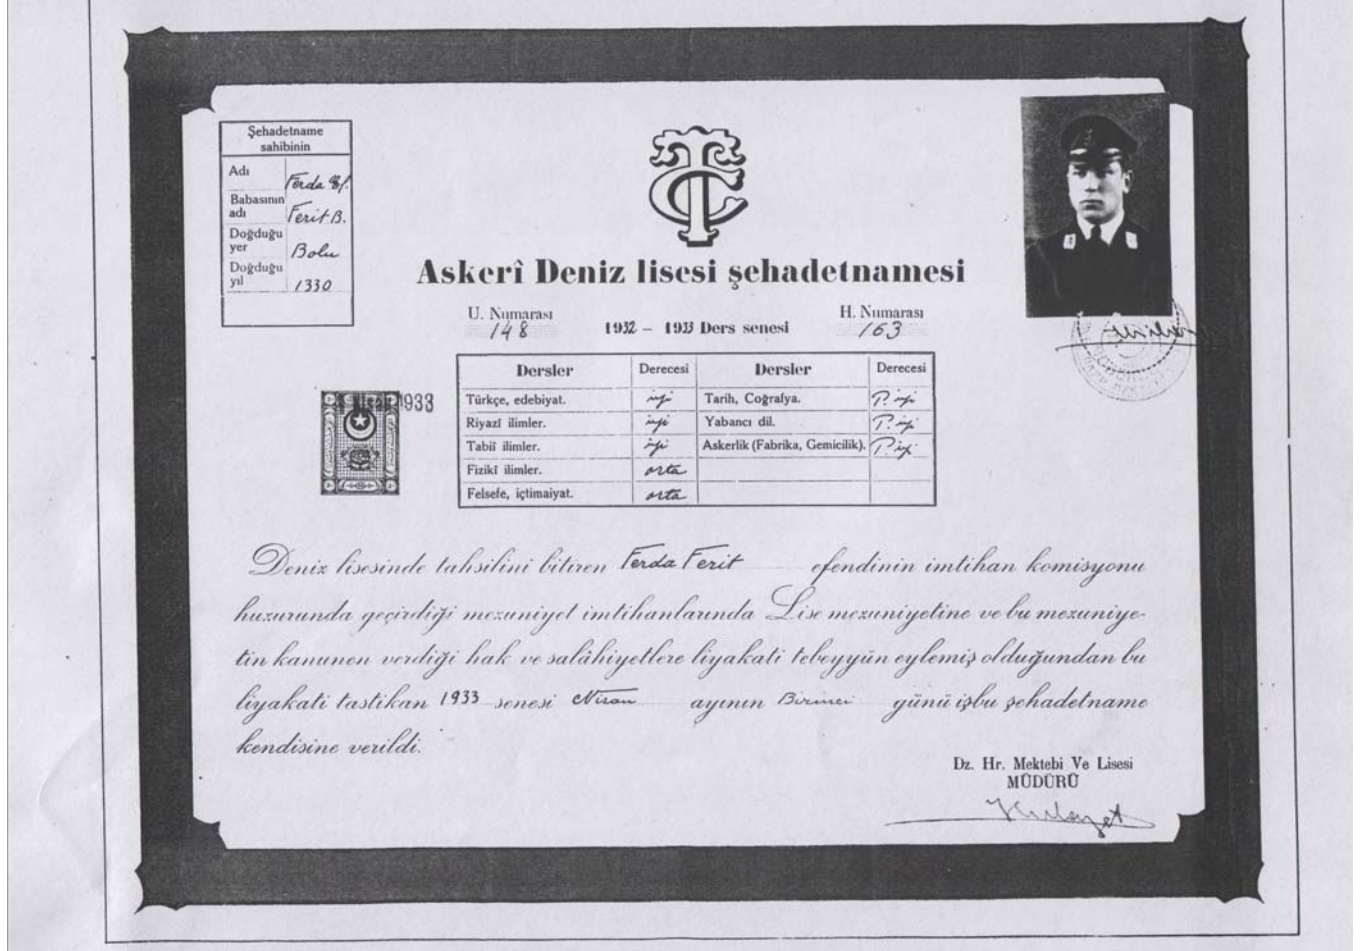 Şehadetname
sahibinin
Adı Ferda Ef.
Babasının
adı Ferit B.
Doğduğu
yer Bolu
Doğduğu
yıl 1330
TC
Askerî Deniz lisesi şehadetnamesi
U. Numarası H. Numarası
148 1932 – 1933 Ders senesi 163
Dersler Derecesi Dersler Derecesi
Türkçe, edebiyat. iyi Tarih, Coğrafya. P. iyi
Riyazî ilimler. iyi Yabancı dil. P. iyi
Tabiî ilimler. iyi Askerlik (Fabrika, Gemicilik). P. iyi
Fizikî ilimler. orta
Felsefe, içtimaiyat. orta
1933
Deniz lisesinde tahsilini bitiren Ferda Ferit efendinin imtihan komisyonu
huzurunda geçirdiği mezuniyet imtihanlarında Lise mezuniyetine ve bu mezuniye-
tin kanunen verdiği hak ve salâhiyetlere liyakati tebeyyün eylemiş olduğundan bu
liyakati tastikan 1933 senesi Nisan ayının Birinci günü işbu şehadetname
kendisine verildi.
Dz. Hr. Mektebi Ve Lisesi
MÜDÜRÜ